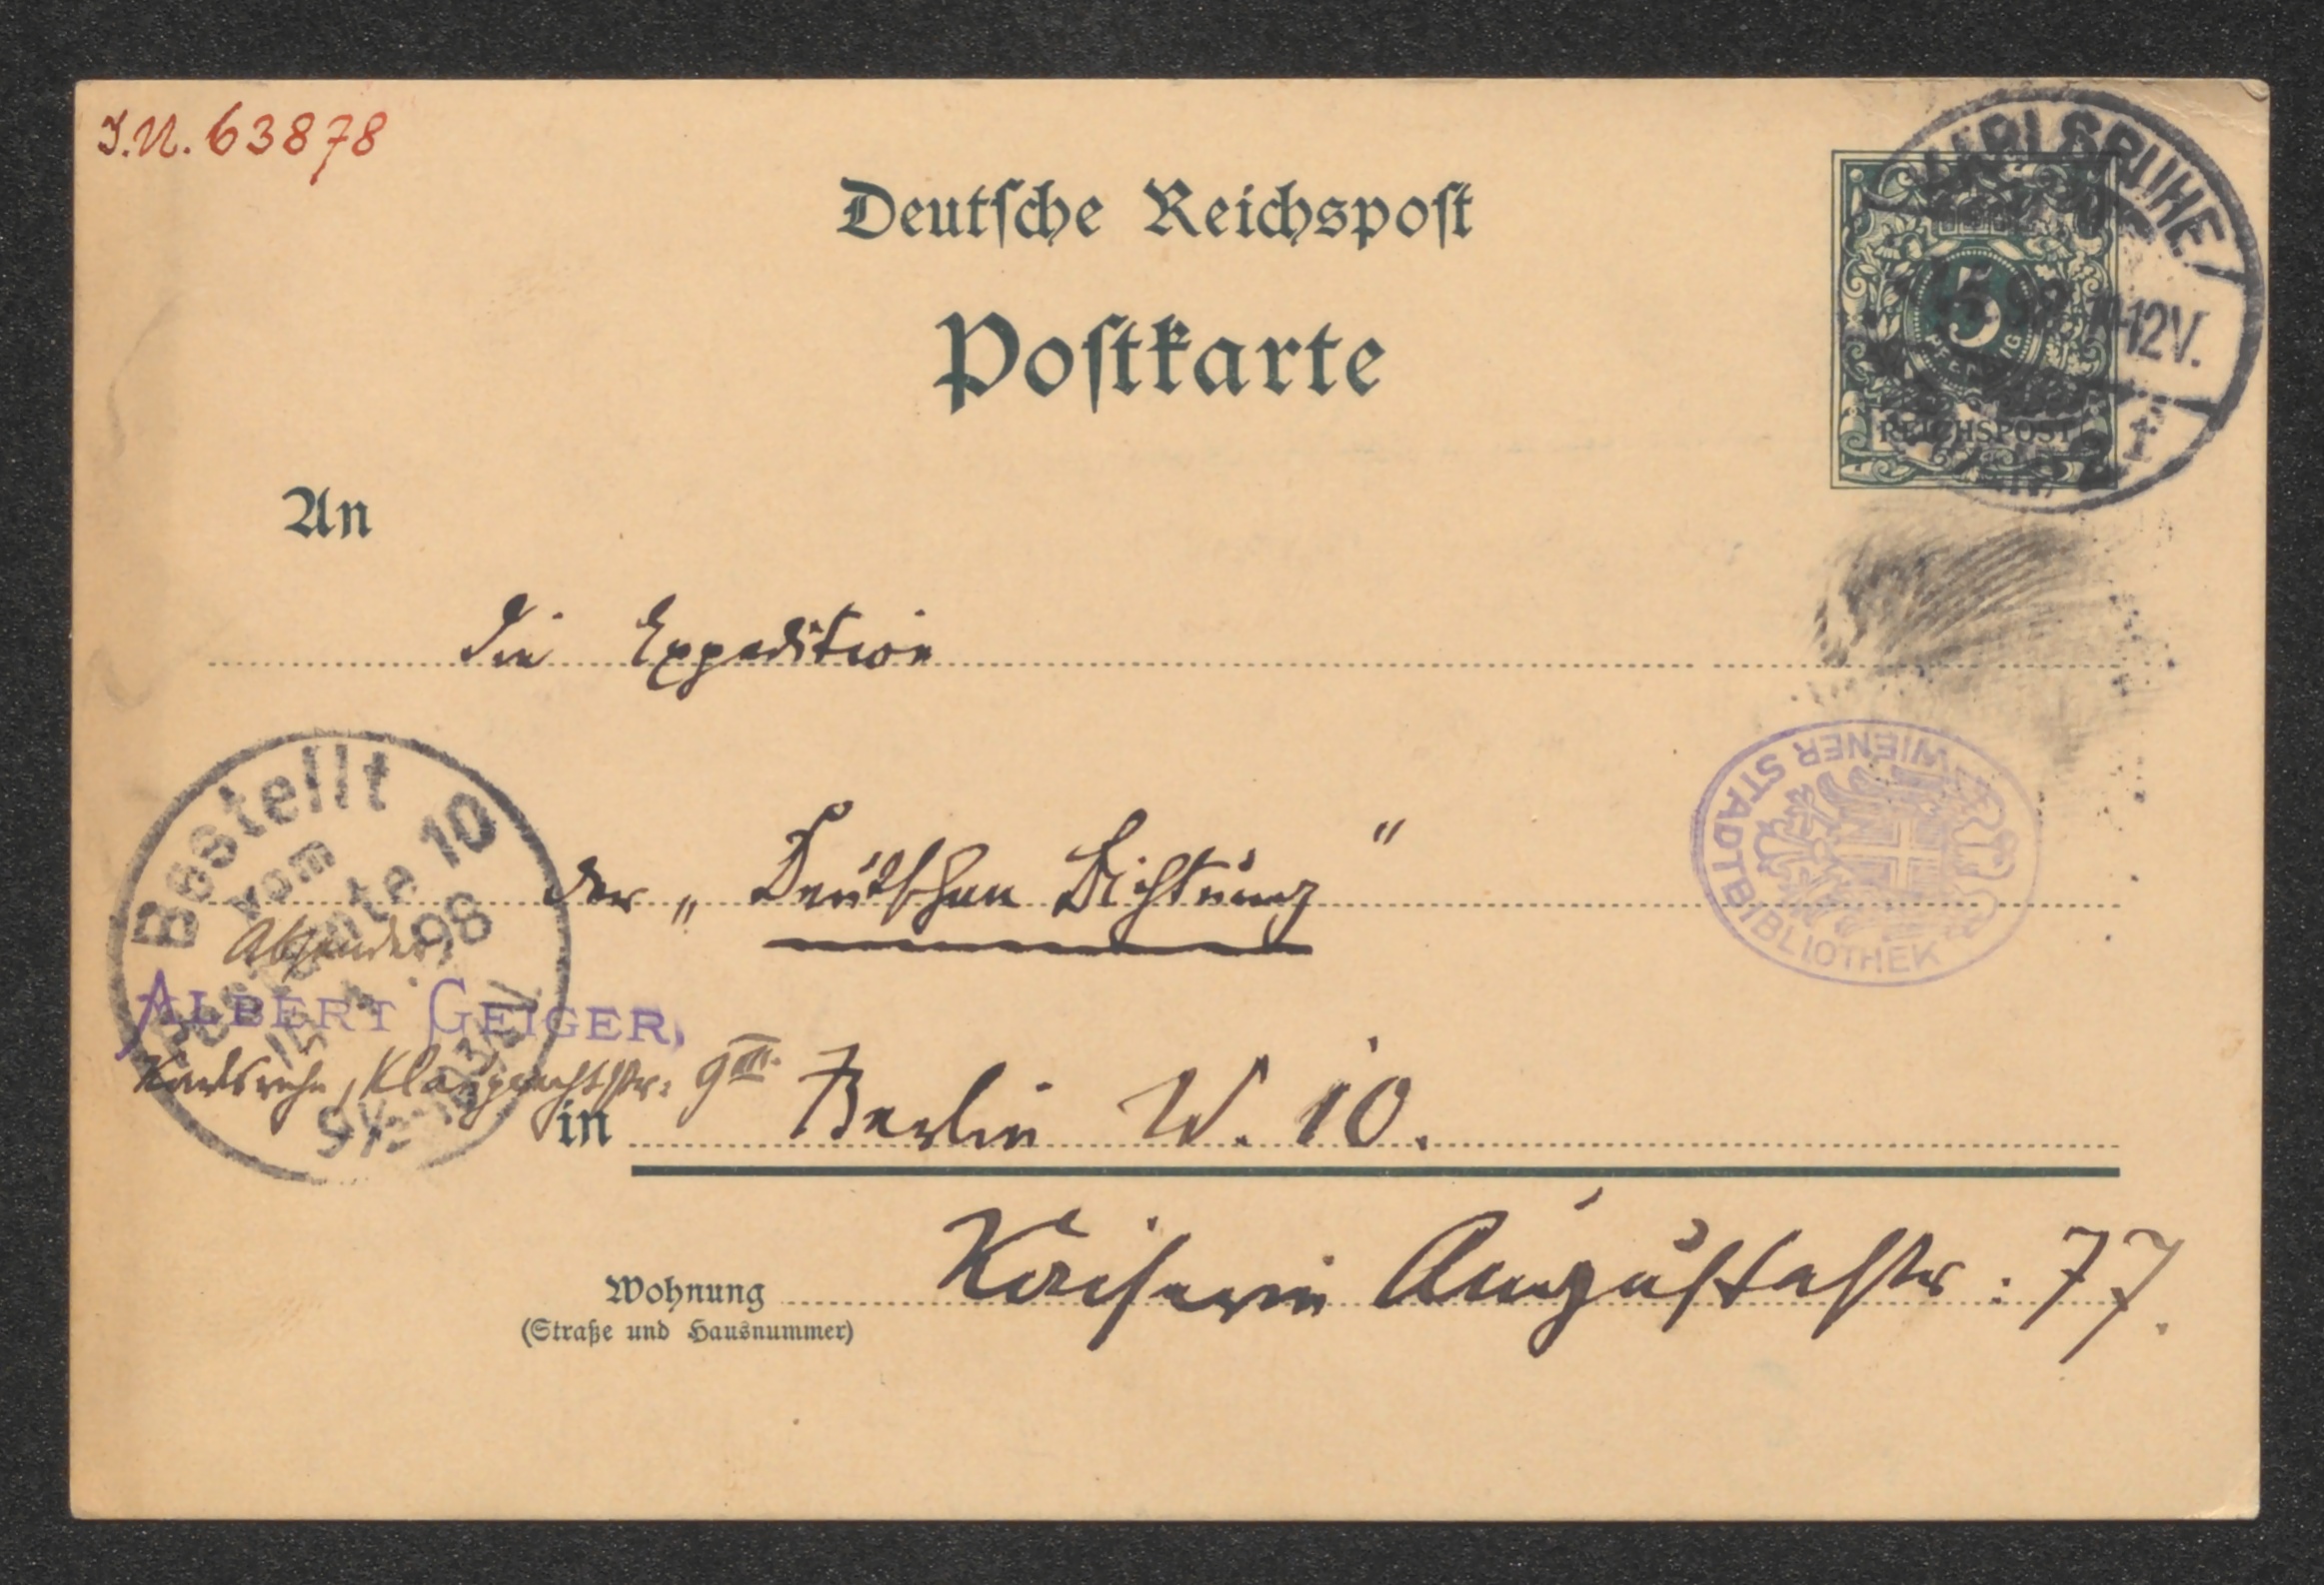 J.N. 63878
Deutsche Reichspost
Postkarte
KARLSRUHE
12V.
5
PFENNIG
REICHSPOST
An
die Expedition
der „Deutschen Dichtung“
WIENER STADTBIBLIOTHEK
Bestellt
vom
Postamte 10
98
Absender,
ALBERT GEIGER,
Karlsruhe, Klauprechtstr: 9III.
in Berlin W. 10.
Wohnung Kaiserin Augustastr: 77.
(Straße und Hausnummer)